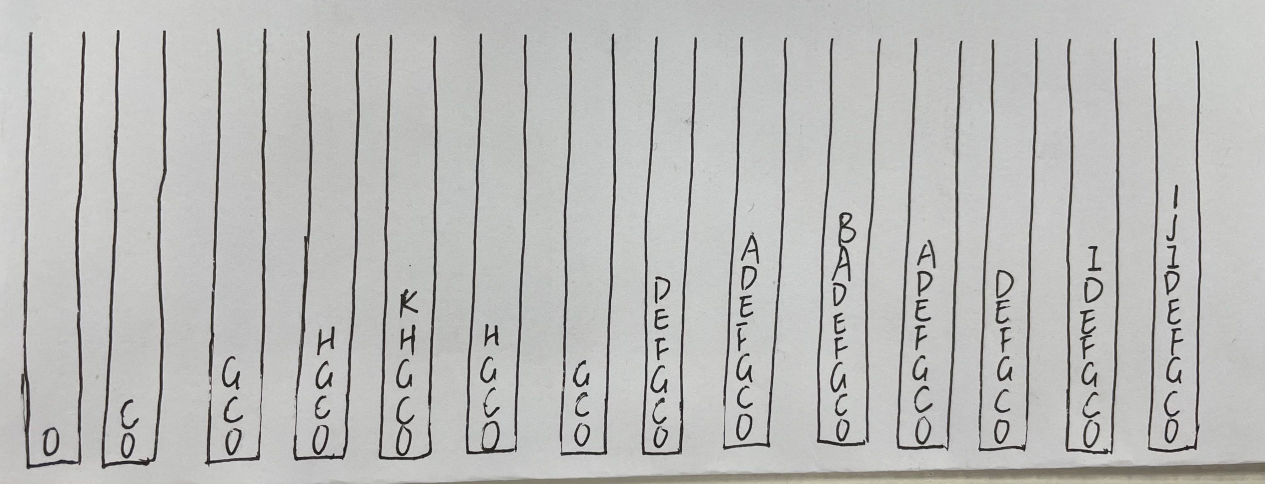 O
CO
GCO
HGCO
KHGCO
HGCO
GCO
DEFGCO
ADEFGCO
BADEFGCO
ADEFGCO
DEFGCO
IDEFGCO
IJIDEFGCO